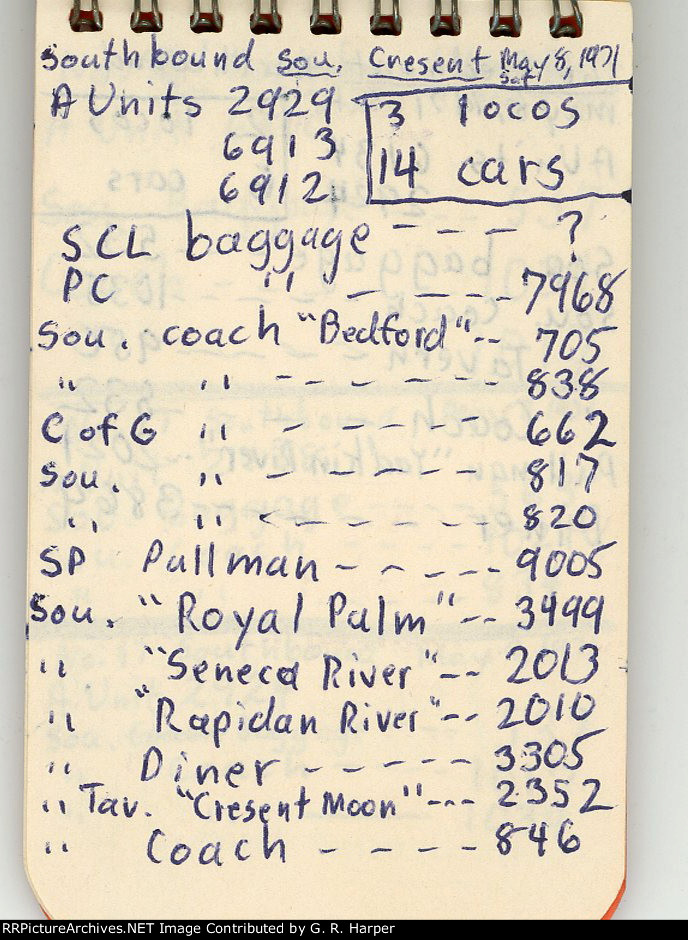 Southbound Sou. Cresent May 8, 1971
Sat.
A Units 2929
6913
6912
3 locos
14 cars
SCL baggage - - - ?
PC " - - - - - 7968
Sou. coach "Bedford" -- 705
" " - - - - - - 838
C of G " - - - - - 662
Sou. " - - - - - - 817
" " - - - - - - 820
SP Pullman - - - - - 9005
Sou. "Royal Palm" -- 3499
" "Seneca River" -- 2013
" "Rapidan River" -- 2010
" Diner - - - - - 3305
" Tav. "Cresent Moon" --- 2352
" Coach - - - - 846
RRPictureArchives.NET Image Contributed by G. R. Harper